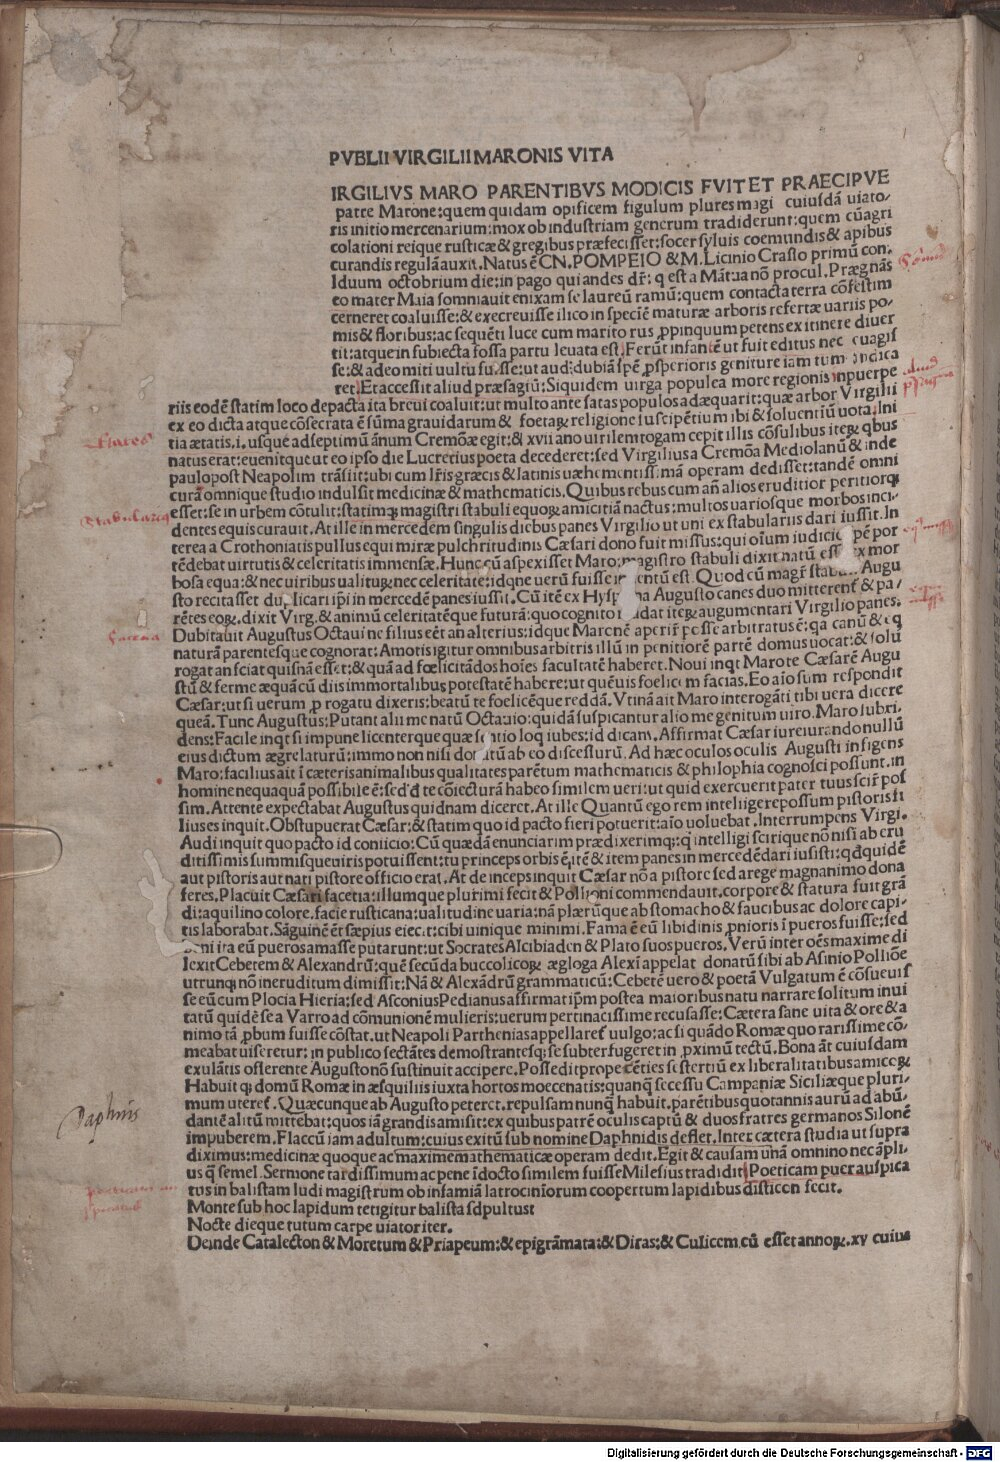 PVBLII VIRGILII MARONIS VITA
IRGILIVS MARO PARENTIBVS MODICIS FVIT ET PRAECIPVE
patre Marone: quem quidam opificem figulum plures magi cuiusdā uiato-
ris initio mercenarium: mox ob industriam generum tradiderunt: quem cū agri
colationi reique rusticæ & gregibus præfecisset: socer syluis coemundis & apibus
curandis regulā auxit. Natus ē CN. POMPEIO & M. Licinio Crasso primū con:
Iduum octobrium die: in pago qui andes dr̄: q est a Mātua nō procul. Prægnās
eo mater Maia somniauit enixam se laureū ramū: quem contacta terra cōfestim
cerneret coaluisse: & excreuisse ilico in speciē maturæ arboris refertæ uariis po-
mis & floribus: ac sequēti luce cum marito rus ꝓpinquum petens ex itinere diuer
tit: atque in subiecta fossa partu leuata est. Ferūt infantē ut fuit editus nec uagis
se: & adeo miti uultu fuisse: ut aud: dubiā spē ꝓsperioris geniture iam tum indica
ret. Et accessit aliud præsagiū: Siquidem uirga populea more regionis in puerpe
riis eodē statim loco depacta ita breui coaluit: ut multo ante satas populos adæquarit: quæ arbor Virgilii
ex eo dicta atque cōsecrata ē sūma grauidarum & foetaꝝ religione suscipētium ibi & soluentiū uota. Ini
tia ætatis .i. usque ad septimū ānum Cremōæ egit: & xvii ano uirilem togam cepit illis cōsulibus iteꝝ qbus
natus erat: euenitque ut eo ipso die Lucretius poeta decederet: sed Virgilius a Cremōa Mediolanū & inde
paulopost Neapolim trāsiit: ubi cum lr̄is græcis & latinis uæhementissimā operam dedisset: tandē omni
curā omnique studio indulsit medicinæ & mathematicis. Quibus rebus cum añ alios eruditior peritiorq;
esset: se in urbem cōtulit: statimq; magistri stabuli equoꝝ amicitiā nactus: multos uariosque morbos inci-
dentes equis curauit. At ille in mercedem singulis diebus panes Virgilio ut uni ex stabulariis dari iussit. In
terea a Crothoniatis pullus equi miræ pulchritudinis Cæsari dono fuit missus: qui oīum iudicio spē por
tēdebat uirtutis & celeritatis immensæ. Hunc cū aspexisset Maro: magistro stabuli dixit natū esse ex mor
bosa equa: & nec uiribus ualituꝝ nec celeritate: idqne uerū fuisse inuentū est. Quod cū magr̄ stabuli Augu
sto recitasset duplicari ip̄i in mercedē panes iussit. Cū itē ex Hyspania Augusto canes duo mitterent̄ & pa-
rētes eoꝝ. dixit Virg. & animū celeritatēque futurā: quo cognito mandat iteꝝ augumentari Virgilio panes.
Dubitauit Augustus Octauine filius eēt an alterius: idque Maronē aperir̄ posse arbitratus ē: qa canū & eq
naturā parentesque cognorat: Amotis igitur omnibus arbitris illū in penitiorē partē domus uocat: & solū
rogat an sciat quisnā esset: & quā ad foelicitādos hoīes facultatē haberet. Noui inqt Maro te Cæsarē Augu
stū & ferme æquā cū diis immortalibus potestatē habere: ut quēuis foelicem facias. Eo aīo sum respondit
Cæsar: ut si uerum ꝓ rogatu dixeris: beatū te foelicēque reddā. Vtinā ait Maro interogāti tibi uera dicere
queā. Tunc Augustus: Putant alii me natū Octauio: quidā suspicantur alio me genitum uiro. Maro subri,
dens: Facile inqt si impune licenterque quæ sentio loq iubes: id dicam. Affirmat Cæsar iureiurando nullū
eius dictum ægre laturū: immo non nisi donatū ab eo discessurū. Ad hæc oculos oculis Augusti infigens
Maro: facilius ait ī cæteris animalibus qualitates parētum mathematicis & philophia cognosci possunt. in
homine nequaquā possibile ē: sed d̄ te cōiecturā habeo similem ueri: ut quid exercuerit pater tuus scir̄ pos
sim. Attente expectabat Augustus quidnam diceret. At ille Quantū ego rem intelligere possum pistoris fi
lius es inquit. Obstupuerat Cæsar: & statim quo id pacto fieri potuerit: aīo uoluebat. Interrumpens Virgi.
Audi inquit quo pacto id coniicio: Cū quædā enunciarim prædixerimq; q intelligi scirique nō nisi ab eru
ditissimis summisque uiris potuissent: tu princeps orbis ē itē & item panes in mercedē dari iusisti: qđ quidē
aut pistoris aut nati pistore officio erat. At deinceps inquit Cæsar nō a pistore sed a rege magnanimo dona
feres. Placuit Cæsari facetia: illumque plurimi fecit & Pollioni commendauit. corpore & statura fuit grā
di: aquilino colore. facie rusticana: ualitudine uaria: nā plærūque ab stomacho & faucibus ac dolore capi-
tis laborabat. Sāguinē ēr sæpius eiecit: cibi uinique minimi. Fama ē eū libidinis pnioris ī pueros fuisse: sed
boni ita eū pueros amasse putarunt: ut Socrates Alcibiaden & Plato suos pueros. Verū inter oēs maxime di
lexit Cebetem & Alexandrū: quē secūda buccolicoꝝ ægloga Alexī appelat donatū sibi ab Asinio Polliōe
utrunq; nō ineruditum dimissit: Nā & Alexādrū grammaticū: Cebetē uero & poetā Vulgatum ē cōsueuis
se eū cum Plocia Hieria: sed Asconius Pedianus affirmat ip̄m postea maioribus natu narrare solitum inui
tatū quidē se a Varro ad cōmunionē mulieris: uerum pertinacissime recusasse: Cætera sane uita & ore & a
nimo tā ꝓbum fuisse cōstat. ut Neapoli Parthenias appellaret̄ uulgo: ac si quādo Romæ quo rarissime cō,
meabat uiseretur: in publico sectātes demostrantesq; se subterfugeret in ꝓximū tectū. Bona āt cuiusdam
exulātis offerente Augusto nō sustinuit accipere. Possedit prope cēties sestertiū ex liberalitatibus amicoꝝ
Habuit q; domū Romæ in æsquiliis iuxta hortos moecenatis: quanq̄ secessu Campaniæ Siciliæque pluri-
mum uteret̄. Quæcunque ab Augusto peteret. repulsam nunq̄ habuit. parētibus quotannis aurū ad abū,
dantē alitū mittebat: quos iā grandis amisit: ex quibus patrē oculis captū & duos fratres germanos Silonē
impuberem. Flaccū iam adultum: cuius exitū sub nomine Daphnidis deflet. Inter cætera studia ut supra
diximus: medicinæ quoque ac maxime mathematicæ operam dedit. Egit & causam unā omnino nec āpli,
us q̄ semel. Sermone tardissimum ac pene īdocto similem fuisse Milesius tradidit. Poeticam puer auspica
tus in balistam ludi magistrum ob infamiā latrociniorum coopertum lapidibus disticon fecit.
Monte sub hoc lapidum tetigitur balista sdpultust
Nocte dieque tutum carpe uiator iter.
Deinde Catalecton & Moretum & Priapeum: & epigrāmata: & Diras: & Culicem. cū esset annoꝝ .xv cuius
Stabulariꝰ
Daphnis
Digitalisierung gefördert durch die Deutsche Forschungsgemeinschaft - DFG